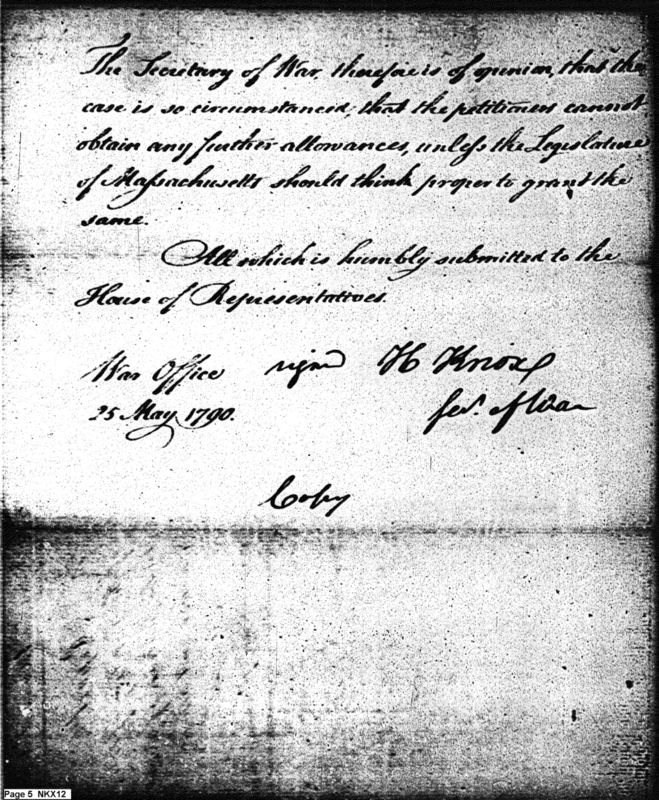 The Secretary of War, therefore is of opinion, that the
case is so circumstanced, that the petitioners cannot
obtain any further allowances, unless the Legislature
of Massachusetts should think proper to grant the
same.
All which is humbly submitted to the
House of Representatives.
War Office signed H Knox
25 May 1790. Secy. of War
Copy
Page 5 NKX12